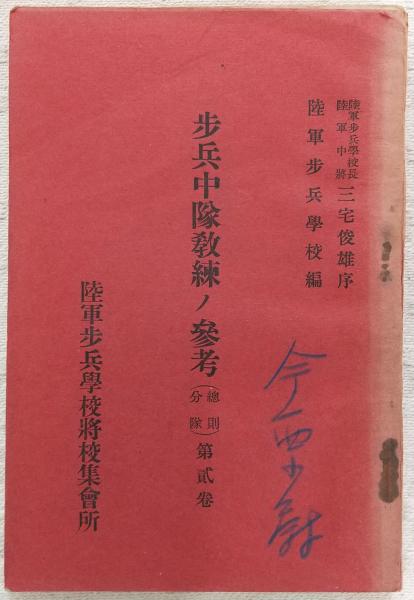 陸軍步兵學校長
陸軍中將
三宅俊雄序
陸軍步兵學校編
步兵中隊敎練ノ參考(總則分隊)第貳卷
陸軍步兵學校將校集會所